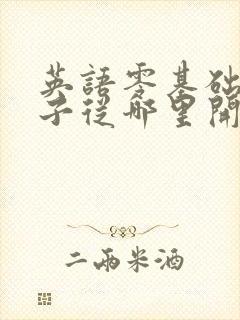 英語零基础
子從哪里開
二兩米酒